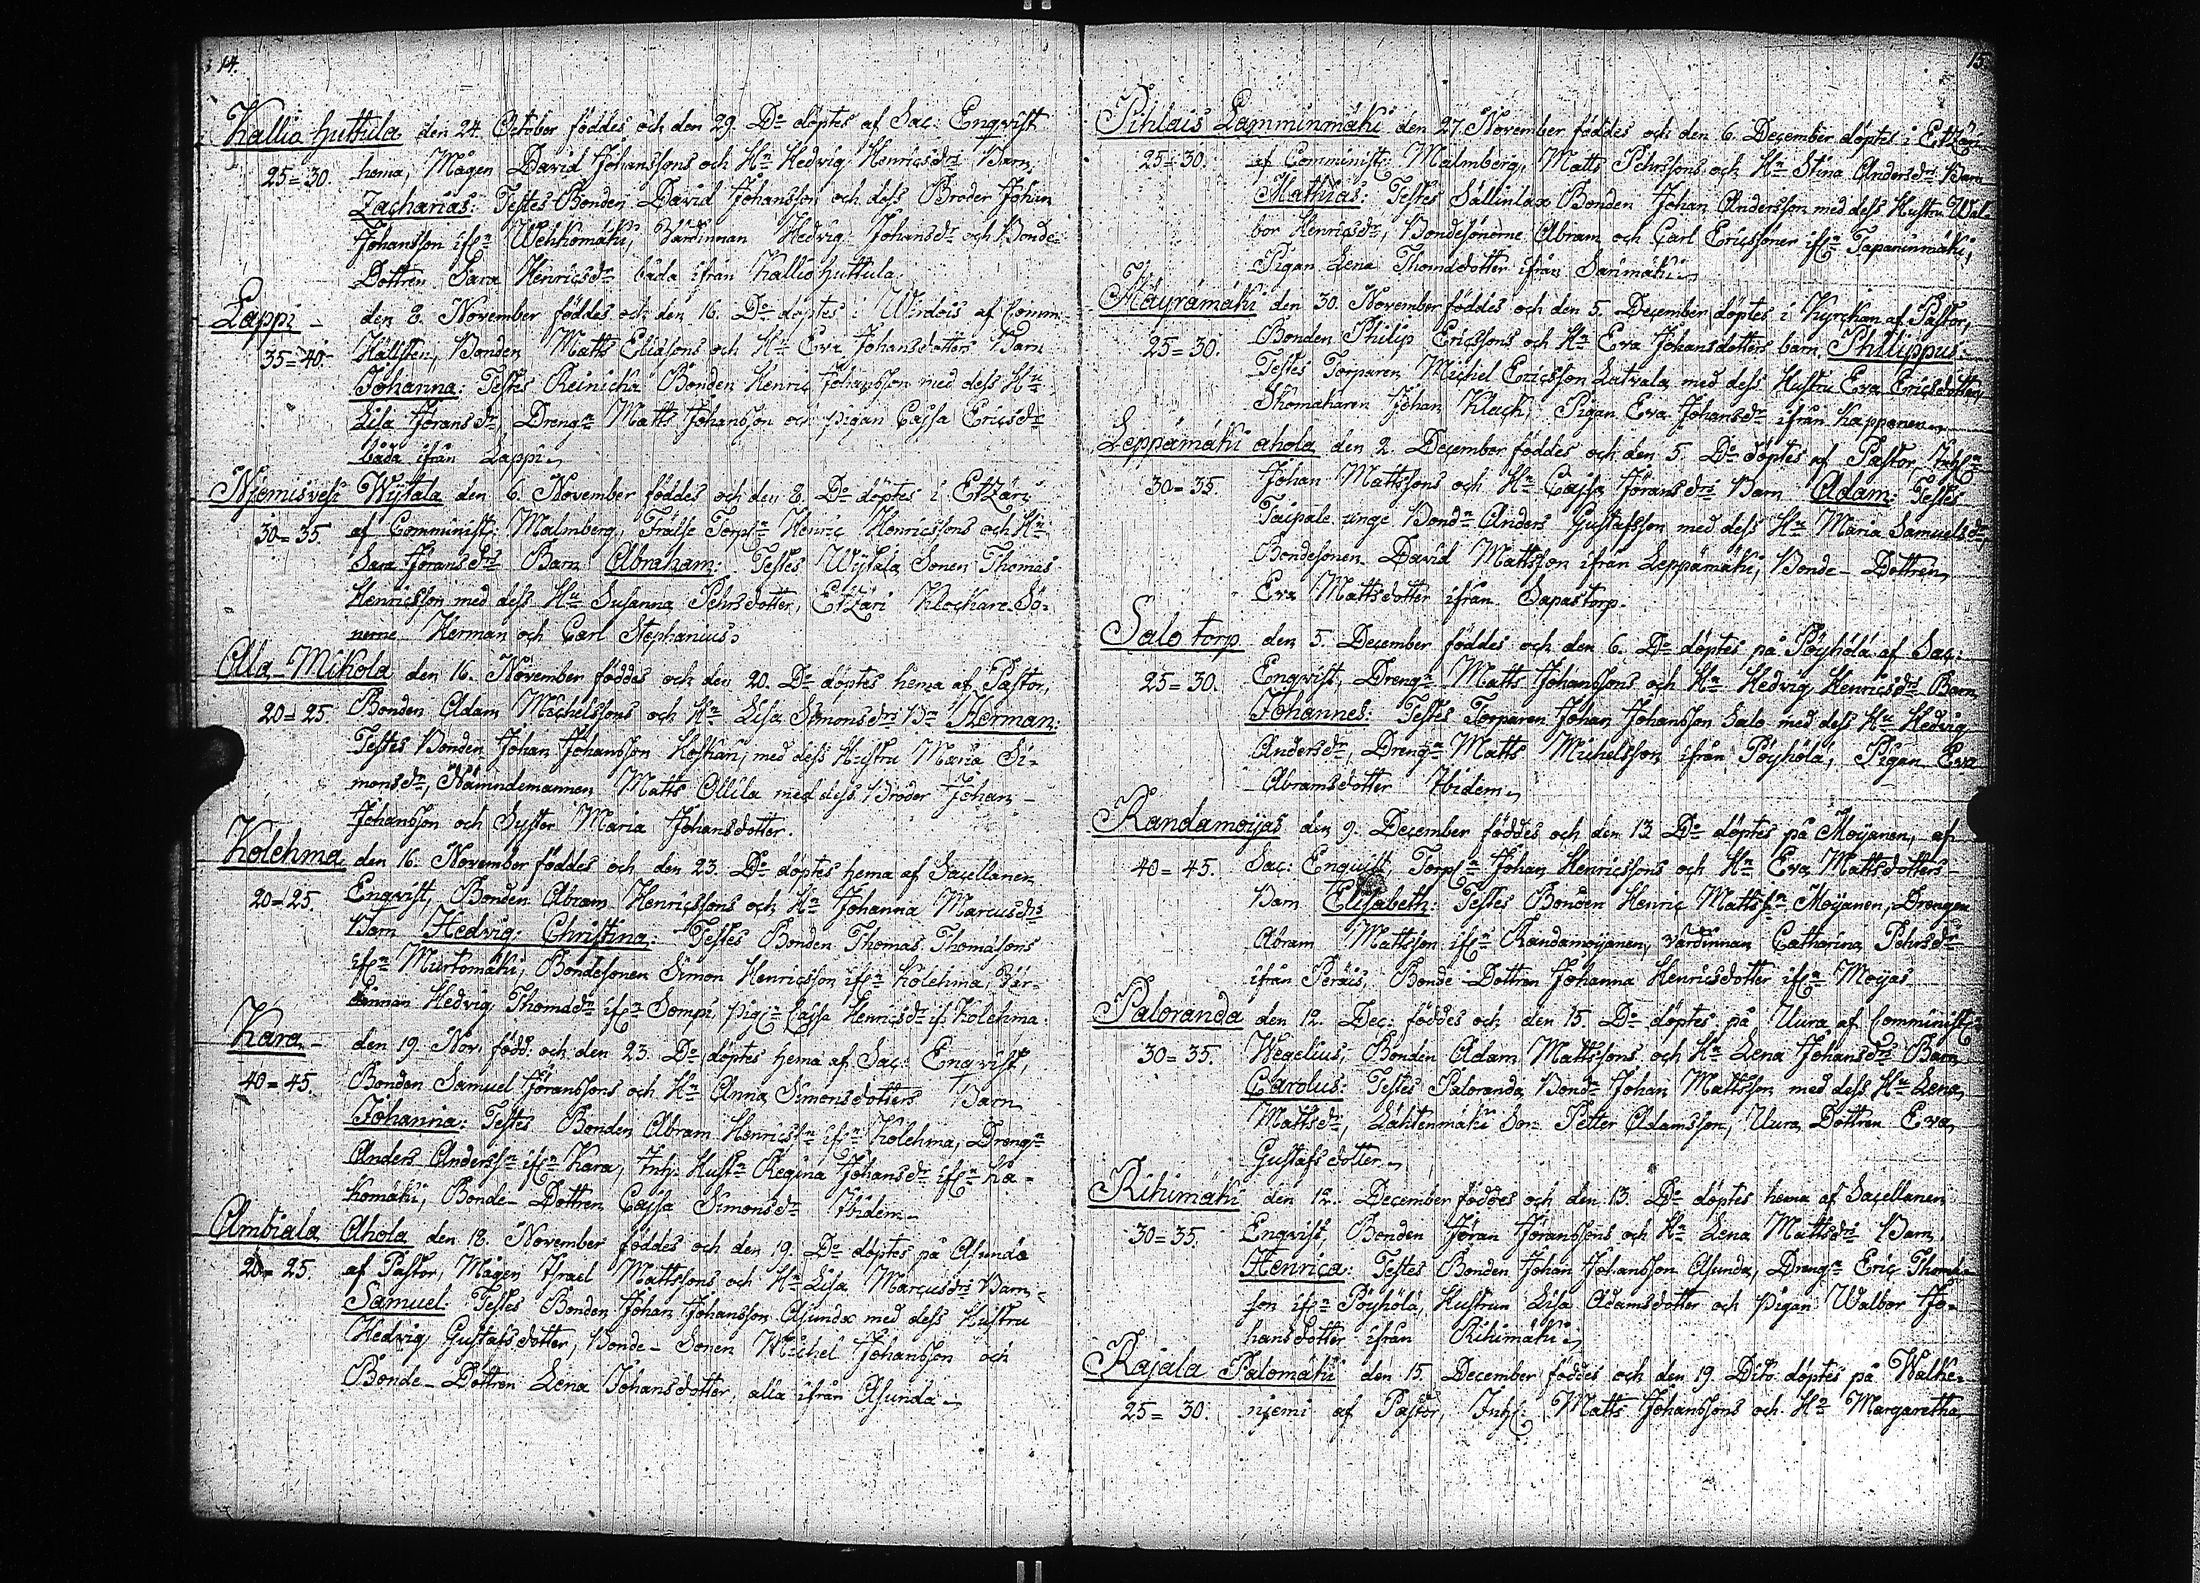 14.
Kallio huttula den 24. October föddes och den 29. Do döptes af Sac: Engvist
25=30. hema, Mågen David Johanssons och Hu Hedvig Henricsdrs Barn
Zacharias: Testes Bonden David Johansson och dess Broder Johan
Johansson ifrn Wehkomäki, Värdinnan Hedvig Johansdr och Bonde-
Dottren Sara Henricsdr båda ifrån Kallio huttula.
Lappi – den 8. November föddes och den 16. Do döptes i Wirdois af Comm:
35=40. Hällsten, Bonden Matts Eliasons och Hu Eva Johansdotters Barn
Johanna: Testes Reinicka Bonden Henric Johansson med dess Hu
Lisa Jöransdr, Drengn Matts Johansson och pigan Cajsa Ericsdr
båda ifrån Lappi.
Njemisvesi Wijtala den 6. November föddes och den 8. Do döptes i Etzäri
30=35. af Comminist: Malmberg, Frälse Torpn Henric Henricssons och Hu
Sara Jöransdrs Barn Abraham: Testes Wijtala Sonen Thomas
Henricsson med dess Hu Susanna Pehrsdotter, Etzäri Klockare-Sö-
nerne Herman och Carl Stephanius.
Ala-Mikola den 16. November föddes och den 20. Do döptes hema af Pastor,
20=25. Bonden Adam Michelssons och Hu Lisa Simonsdrs Bn Herman:
Testes Bonden Johan Johansson Koskari, med dess Hustru Maria Si-
monsdr, Nämndemannen Matts Ollila med dess Broder Johan
Johansson och Syster Maria Johansdotter.
Kolehma den 16. November föddes och den 23. Do döptes hema af Sacellanen
20=25. Engvist, Bonden Abram Henricssons och Hu Johanna Marcusdrs
Barn Hedvig Christina: Testes Bonden Thomas Thomasons
ifrn Murtomäki, Bondesonen Simon Henricsson ifrn Kolehma, Vär-
dinnan Hedvig Thomasdr ifrn Sompi, pign Cajsa Henricsdr if. Kolehma.
Kara – den 19. Nov. född. och den 23. Do döptes hema af Sac: Engvist,
40=45. Bonden Samuel Jöranssons och Hu Anna Simonsdotters Barn
Johanna: Testes Bonden Abram Henricssn ifrn Kolehma, Drengn
Anders Anderssn ifrn Kara, Inh: Hustn Regina Johansdr ifrn Ka-
komäki, Bonde-Dottren Cajsa Simonsdr Ibidem.
Ambiala Ahola den 18. November föddes och den 19. Do döptes på Asunda
20=25. af Pastor, Mågen Israel Mattssons och Hu Lisa Marcusdrs Barn
Samuel: Testes Bonden Johan Johansson Asunda med dess Hustru
Hedvig Gustafsdotter, Bonde-Sonen Michel Johansson och
Bonde-Dottren Lena Johansdotter, alla ifrån Asunda.
15.
Pihlais Lamminmäki den 27. November föddes och den 6. December döptes i Etzäri
25=30. af Comminist: Malmberg, Matts Pehrssons och Hu Stina Andersdrs Barn
Mathias: Testes Sällinlax Bonden Johan Andersson med dess Hustru Wal-
bor Henricsdr, Bondesönerne Abram och Carl Ericssöner ifrn Tapaninmäki,
Pigan Lena Thomsdotter ifrån Sarimäki.
Mäyrämäki den 30. November föddes och den 5. December döptes i Kyrckan af Pastor,
25=30. Bonden Philip Ericssons och Hu Eva Johansdotters barn Philippus:
Testes Torparen Michel Ericsson Latvala med dess Hustru Eva Ericsdotter,
Skomakaren Johan Klack, Pigan Eva Johansdr ifrån Kapponen.
Leppämäki ahola den 2. December föddes och den 5. Do döptes af Pastor, Inhn
30=35. Johan Mattssons och Hu Cajsa Jöransdrs Barn Adam: Testes
Taipale unge Bondn Anders Gustafsson med dess Hu Maria Samuelsdr,
Bondesonen David Mattsson ifrån Leppämäki, Bonde-Dottren
Eva Mattsdotter ifrån Sapastorp.
Salo torp den 5. December föddes och den 6. Do döptes på Pöyhölä af Sac:
25=30. Engvist, Drengn Matts Johanssons och Hu Hedvig Henricsdrs Barn
Johannes: Testes Torparen Johan Johansson Salo med dess Hu Hedvig
Andersdr, Drengn Matts Michelsson ifrån Pöyhölä, Pigan Eva
Abramsdotter Ibidem.
Randamoijas den 9. December föddes och den 13. Do döptes på Moijanen, af
40=45. Sac: Enqvist, Torpn Johan Henricssons och Hu Eva Mattsdotters
Barn Elisabeth: Testes Bonden Henric Mattsn Moijanen, Drengen
Abram Mattsson ifrn Randamoijanen, värdinnan Catharina Pehrsdr
ifrån Peräis, Bonde-Dottren Johanna Henricsdotter ifrn Moijas.
Paloranda den 12. Dec: föddes och den 15. Do döptes på Uura af Comminist:
30=35. Wegelius, Bonden Adam Mattssons och Hu Lena Johansdrs Barn
Carolus: Testes Paloranda Bondn Johan Mattsson med dess Hu Lena
Mattsdr, Lähtenmäki Son Petter Adamsson, Uura Dottren Eva
Gustafsdotter.
Rihimäki den 12. December föddes och den 13. Do döptes hema af Sacellanen
30=35. Engvist, Bonden Jöran Jöranssons och Hu Lena Mattsdrs Barn
Henrica: Testes Bonden Johan Johansson Asunda, Drengn Eric Thomas-
son ifrn Pöyhölä, Hustrun Lisa Adamsdotter och pigan Walbor Jo-
hansdotter ifrån Rihimäki.
Rajala Palomäki den 15. December föddes och den 19. Dito döptes på Walke-
25=30. njemi af Pastor, Inh: Matts Johanssons och Hu Margaretha